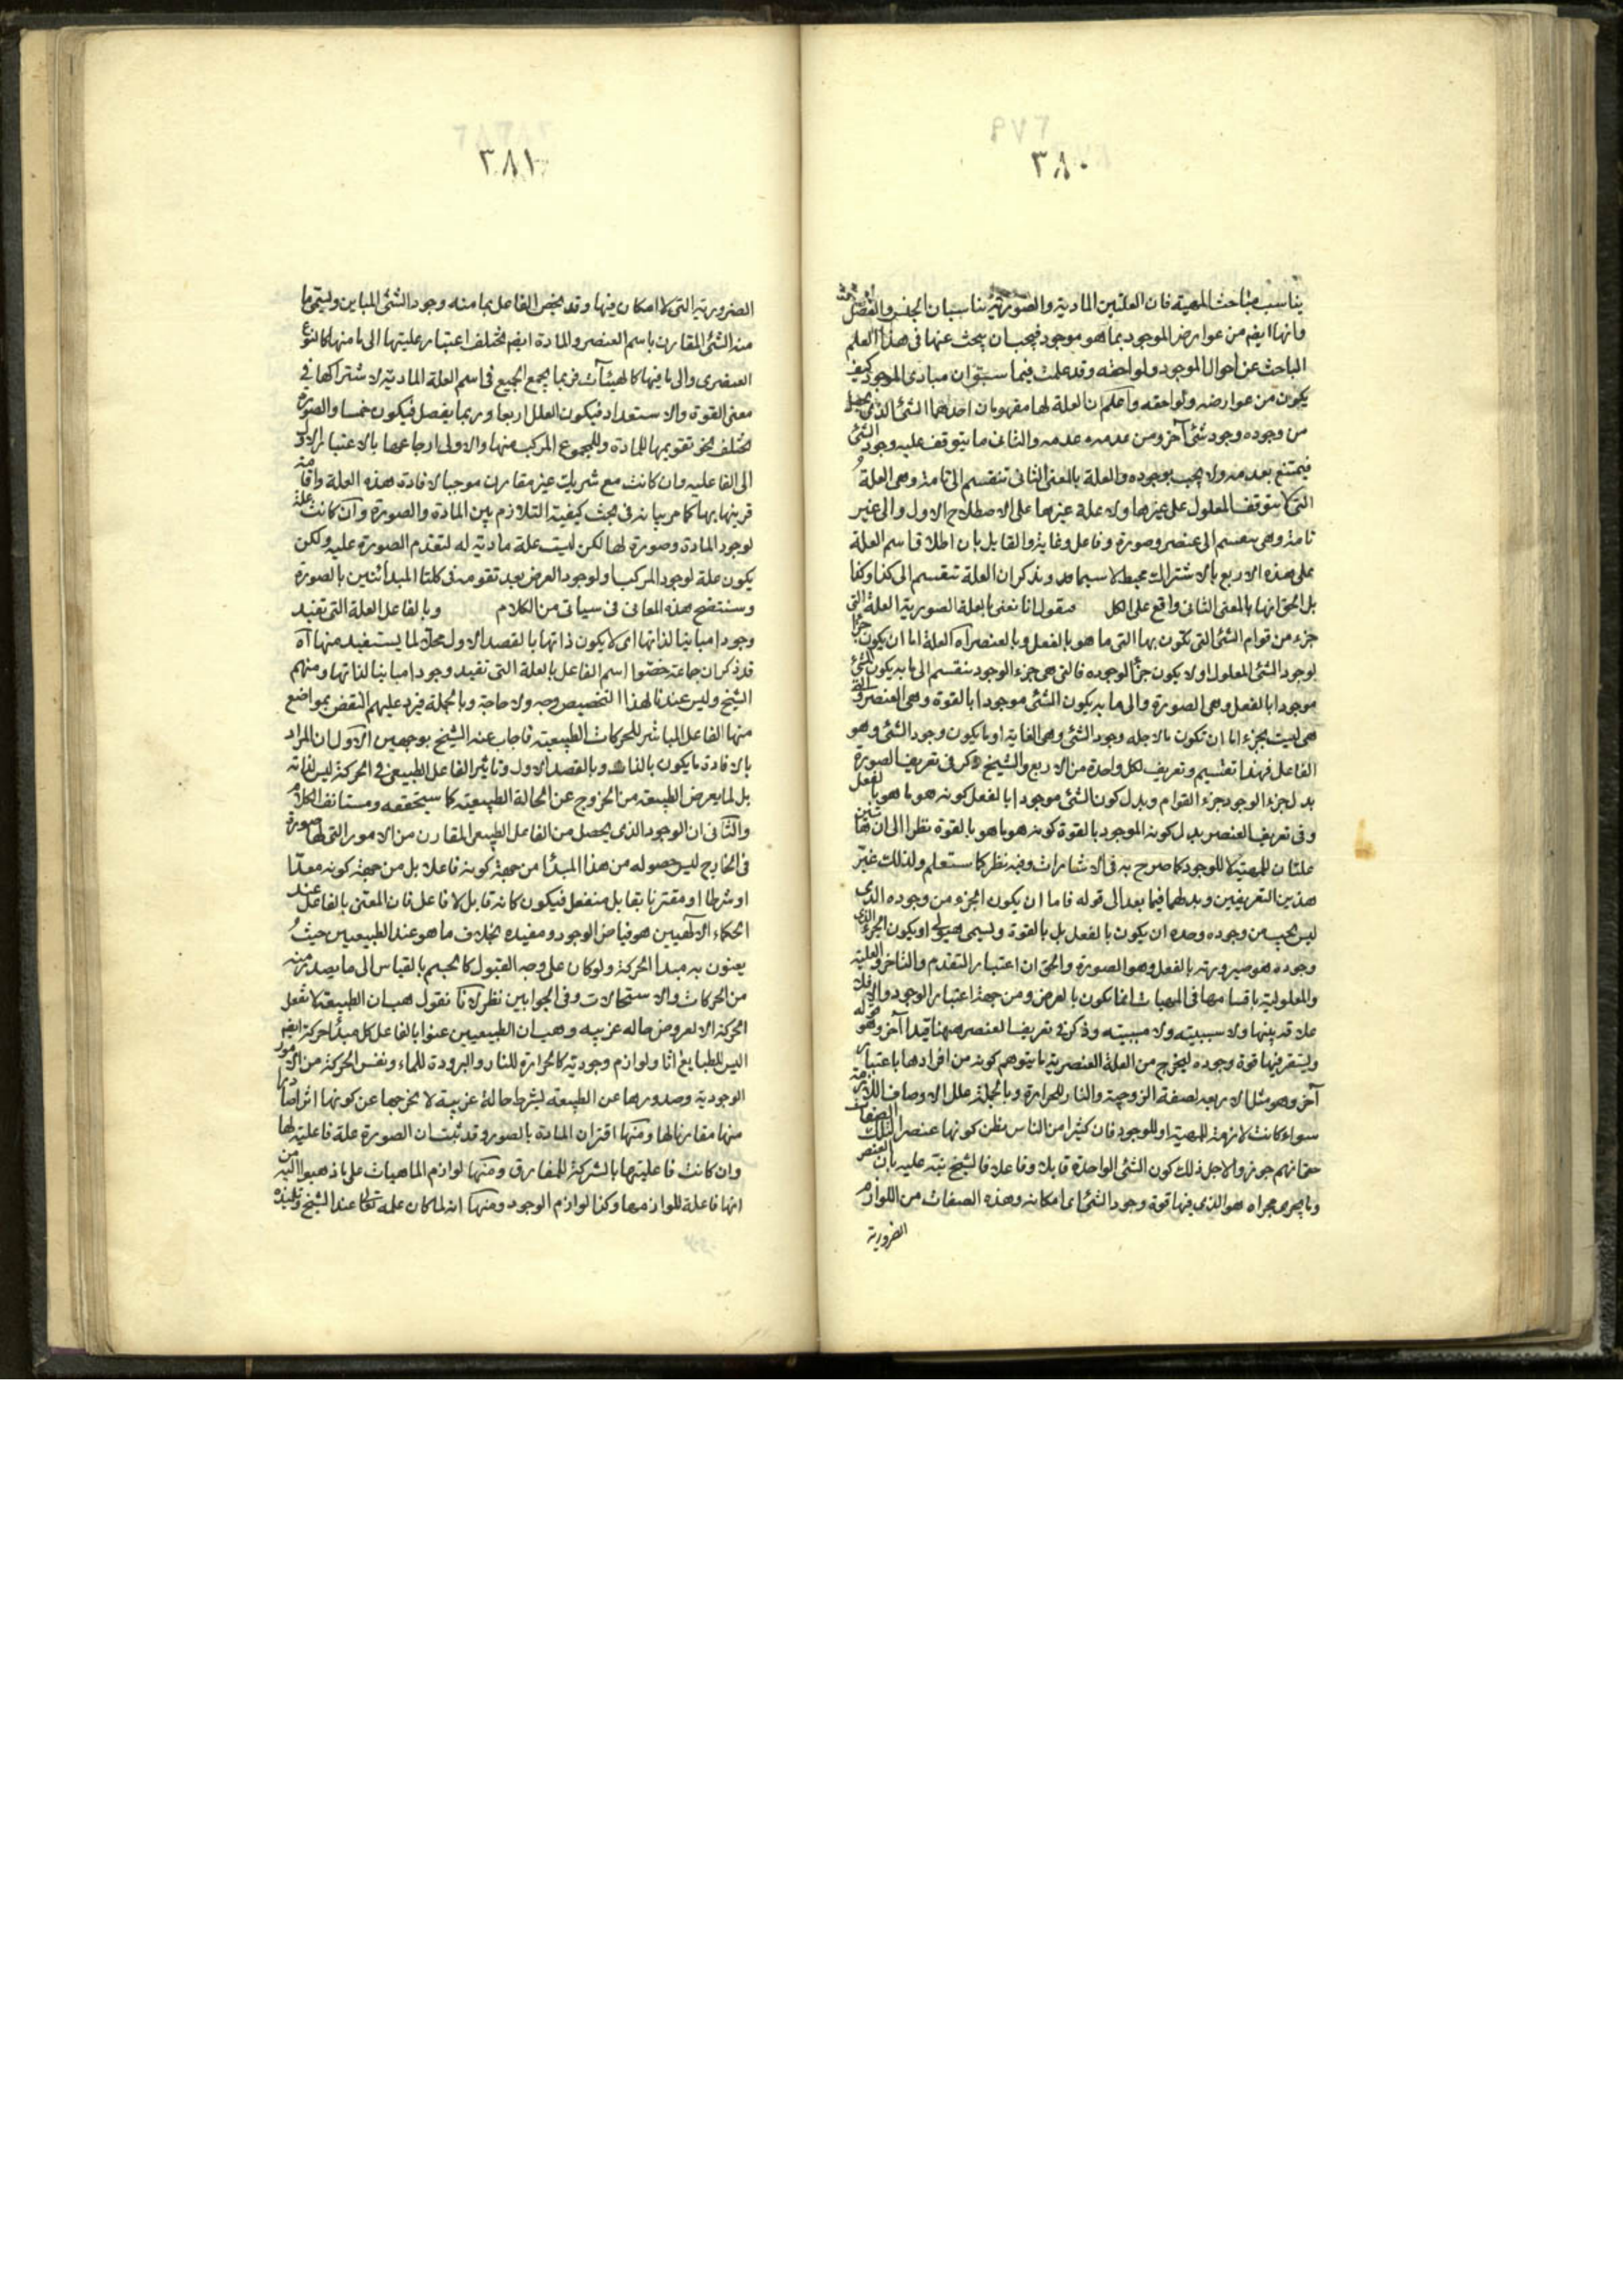 ٣٨٠
يناسب مباحث المهية فان العلتين المادية والصورية يناسبان الجنس والفصل
وانها ايضا من عوارض الموجود بما هو موجود فيجب ان يبحث عنها فى هذا العلم
الباحث عن احوال الموجود ولواحقه وقد علمت فيما سبق ان مبادى الموجود كيف
يكون من عوارضه ولواحقه واعلم ان العلة لها مفهومان احدهما الشئ الذى يحصل
من وجوده وجود شئ آخر ومن عدمه عدمه والثانى ما يتوقف عليه وجود الشئ
فيمتنع بعدمه ولا يجب بوجوده والعلة بالمعنى الثانى تنقسم الى تامة وهى العلة
التى لا يتوقف المعلول على غيرها ولا علة غيرها على الاصطلاح الاول والى غير
تامة وهى ينقسم الى عنصر وصورة وفاعل وغاية والقايل بان اطلاق اسم العلة
على هذه الاربع بالاشتراك مخبط لا سيما قد ويذكر ان العلة تنقسم الى كذا وكذا
بل الحق انها بالمعنى الثانى واقع على الكل فنقول انا نعنى بالعلة الصورية العلة التى
جزء من قوام الشئ التى يكون بها التى ما هو بالفعل وبالعنصر اه العلة اما ان يكون جزأ
لوجود الشئ المعلول او لا يكون جزأ لوجوده فالتى هى جزء الوجود ينقسم الى ما به يكون الشئ
موجودا بالفعل وهى الصورة والى ما به يكون الشئ موجودا بالقوة وهى العنصر والتى
هى ليست بجزء اما ان تكون ما لاجله وجود الشئ وهى الغاية او ما يكون وجود الشئ وهو
الفاعل فهذا تقسيم وتعريف لكل واحدة من الاربع والشيخ ذكر فى تعريف الصورة
بدل جزء الوجود جزء القوام وبدل كون الشئ موجودا بالفعل كونه هو ما هو بالفعل
وفى تعريف العنصر بدل كونه الموجود بالقوة كونه هو ما هو بالقوة نظرا الى ان هاتين
علتان للمهية لا للوجود كما صرح به فى الاشارات وفيه نظر كما ستعلم ولذلك غيّر
هذين التعريفين وبدلهما فيما بعد الى قوله فاما ان يكون الجزء من وجوده الذى
ليس يجب من وجوده وحده ان يكون بالفعل بل بالقوة ويسمى هيولى او يكون الجزء الذى
وجوده هو صيرورته بالفعل وهو الصورة والحق ان اعتبار التقدم والتاخر والعلية
والمعلولية باقسامها فى المهيات انما يكون بالعرض ومن جهة اعتبار الوجود والا فلا
علاقة بينها ولا سببيته ولا مسببيته وذكر فى تعريف العنصر ههنا قيدا آخر وهو قوله
ويستقر فيها قوة وجوده ليخرج من العلة العنصرية ما يتوهم كونه من افرادها باعتبار
آخر وهو مثل الاربعة لصفة الزوجية والنار للحرارة وبالجملة علل الاوصاف اللازمة
سواء كانت لازمة للمهية او للوجود فان كثيرا من الناس يظن كونها عنصرا لتلك الصفات
حتى انهم جوزوا لاجل ذلك كون الشئ الواحد قابلا وفاعلا فالشيخ نبّه عليه بان العنصر
وما يجرى مجراه هو الذى فيها قوة وجود الشئ اى امكانه وهذه الصفات من اللوازم
الضرورية
٣٨١
الضرورية التى لا امكان فيها وقد يخص الفاعل بما منه وجود الشئ المباين ويسمى ما
منه الشئ المقارن باسم العنصر والمادة ايضا يختلف اعتبار عليتها الى ما منها كالنوع
العنصرى والى ما فيها كالهيئات فربما يجمع الجميع فى اسم العلة المادية لاشتراكها فى
معنى القوة والاستعداد فيكون العلل اربعا وربما يفصل فيكون خمسا والصورة
تختلف نحو تقويمها للمادة وللمجموع المركب منها والاولى ارجاعها بالاعتبار الاول
الى الفاعلية وان كانت مع شريك غير مقارن موجبا لافادة هذه العلة واقامة
قرينها بها كما مر بيانه فى بحث كيفية التلازم بين المادة والصورة وان كانت علة
لوجود المادة وصورة لها لكن ليست علة مادية له لتقدم الصورة عليه ولكن
يكون علة لوجود المركب ولوجود العرض بعد تقومه فى كلتا المبدأتين بالصورة
وستتضح هذه المعانى فى سياتى من الكلام وبالفاعل العلة التى تفيد
وجودا مباينا لذاتها اى لا يكون ذاتها بالقصد الاول محلا لما يستفيد منها اه
قد ذكر ان جماعة خصوا اسم الفاعل بالعلة التى تفيد وجودا مباينا لذاتها ومنهم
الشيخ وليس عندنا لهذا التخصيص وجه ولا حاجة وبالجملة فيرد عليهم النقض بمواضع
منها الفاعل المباشر للحركات الطبيعية فاجاب عنه الشيخ بوجهين الاول ان المراد
بالافادة ما يكون بالذات وبالقصد الاول وتاثير الفاعل الطبيعى فى الحركة ليس لذاته
بل لما يعرض الطبيعة من الخروج عن الحالة الطبيعية كما سيتحققه ومستانف الكلام
والثانى ان الوجود الذى يحصل من الفاعل الطبيعى المقارن من الامور التى لها صورة
فى الخارج ليس حصوله من هذا المبدأ من جهة كونه فاعلا بل من جهة كونه معدّا
او شرطا او مقترنا بقابل منفعل فيكون كانه قابل لا فاعل فان المعنى بالفاعل عند
الحكماء الالهيين هو فياض الوجود ومفيده بخلاف ما هو عند الطبيعيين حيث
يعنون به مبدا الحركة ولو كان على وجه القبول كالجسم بالقياس الى ما يصدر منه
من الحركات والاستحالات وفى الجوابين نظر لانا نقول هب ان الطبيعة لا تفعل
الحركة الا لعروض حاله غريبه وهب ان الطبيعيين عنوا بالفاعل كل مبدأ حركة ايضا
اليس للطبايع اثار ولوازم وجودية كالحرارة للنار والبرودة للماء ونفس الحركة من الامور
الوجودية وصدورها عن الطبيعة بشرط حالة غريبة لا يخرجها عن كونها اثرا صادرا
منها مقارنا لها ومنها اقتران المادة بالصور وقد ثبت ان الصورة علة فاعلية لها
وان كانت فاعليتها بالشركة للمفارق ومنها لوازم الماهيات على ما ذهبوا اليه من
انها فاعلة للوازمها وكذا لوازم الوجود ومنها انه لما كان علمه تعالى عند الشيخ وتلميذه